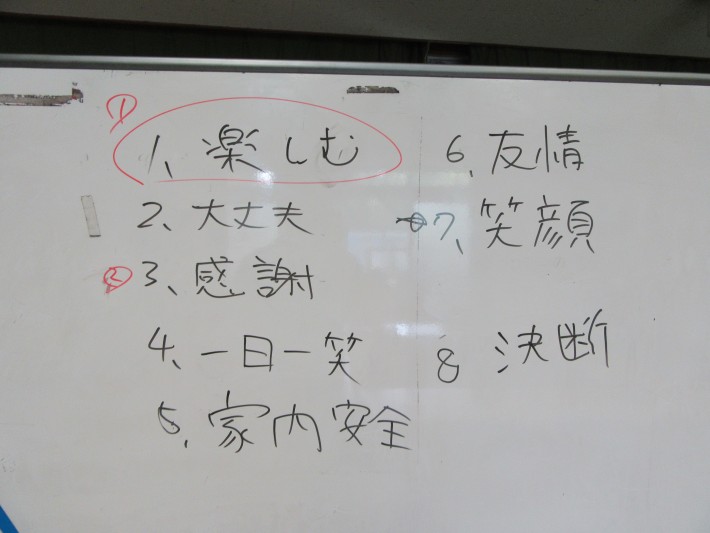 ① 1、楽しむ
2、大丈夫
② 3、感謝
4、一日一笑
5、家内安全
6、友情
7、笑顔
8 決断